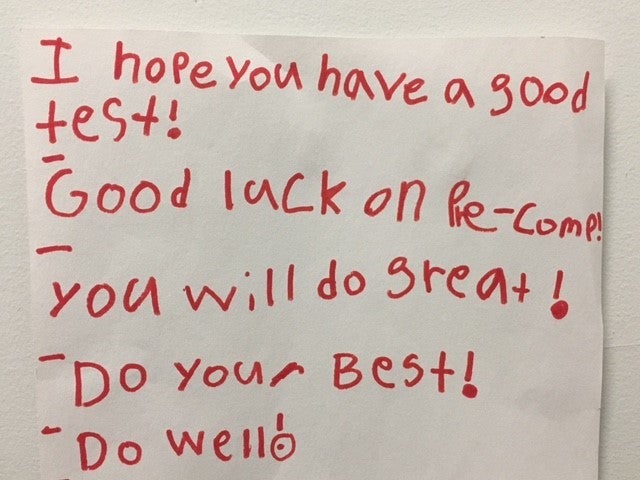 I hope you have a good
test!
- Good luck on Pre-Comp!
- you will do great!
- Do your Best!
- Do well!